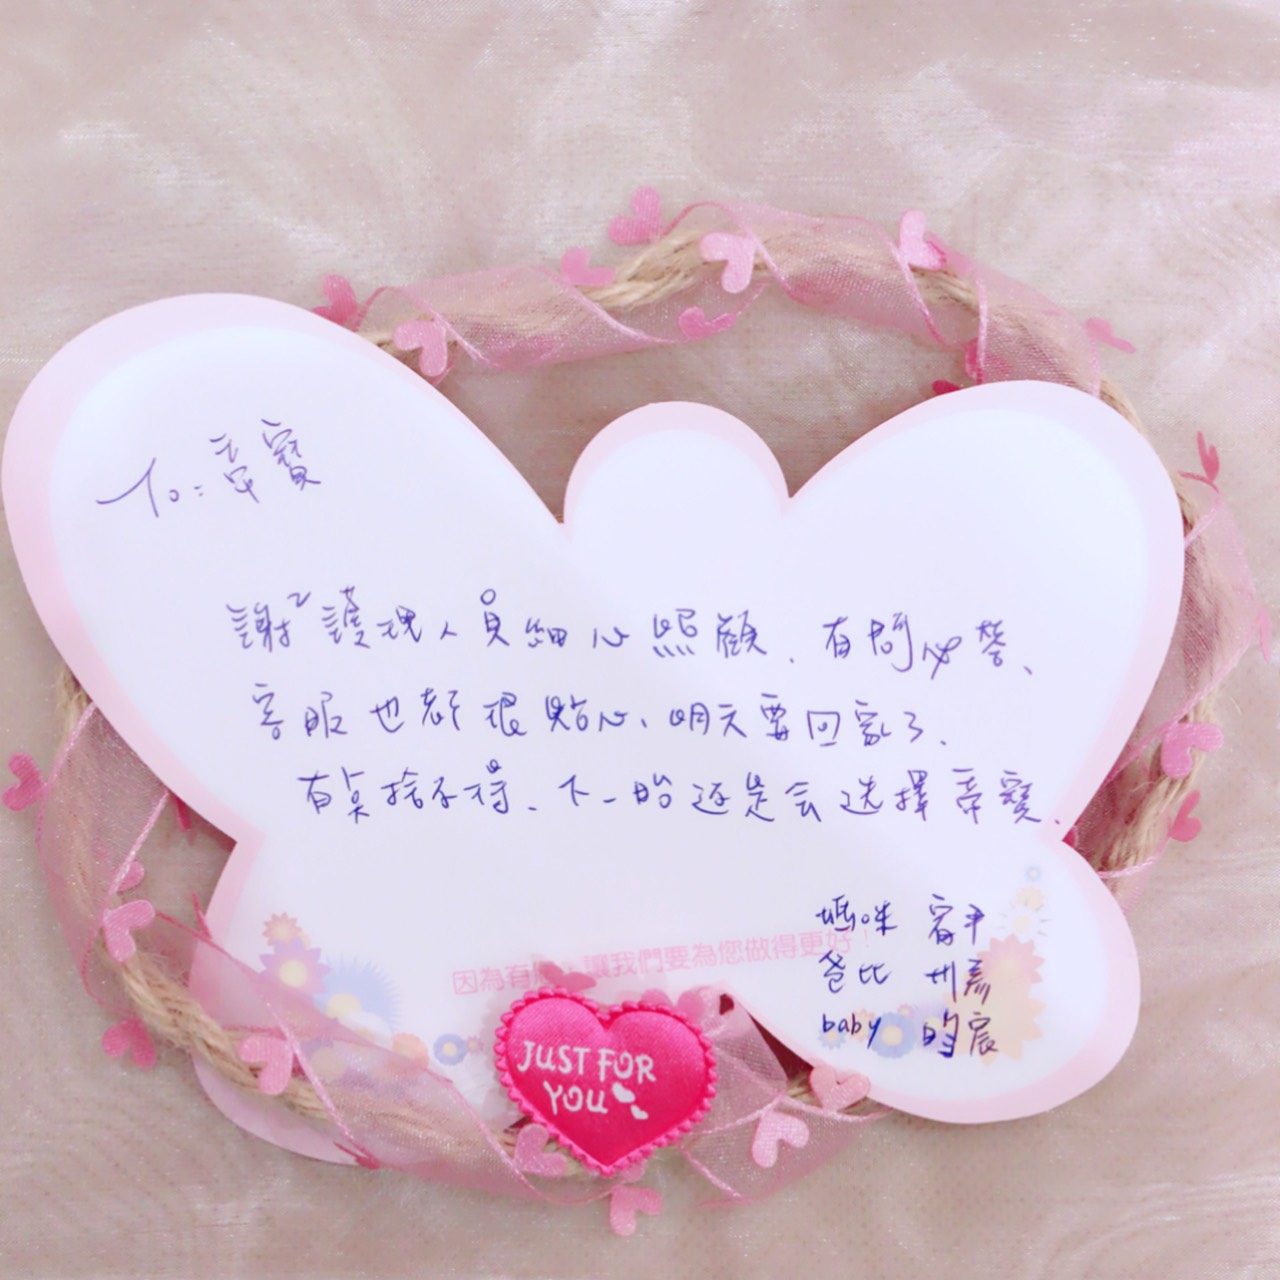 To: 帝寶
謝² 護理人員細心照顧、有問必答、
客服也都很貼心、明天要回家了、
有點捨不得、下一胎还是会选擇帝寶.
媽咪
爸比
baby 昀宸
因為有 讓我們要為您做得更好！
JUST FOR
YOU